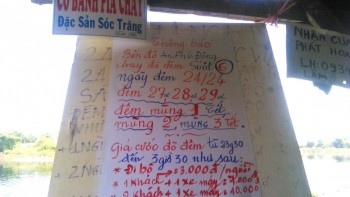 CÓ BÁNH PÍA CHAY
Đặc Sản Sóc Trăng
Thông báo
Bến đò An Phú Đông
chạy đò đêm suốt
ngày đêm 24/24
đêm 27 - 28 + 29 -
đêm mùng 1 Tết
mùng 2, mùng 3 Tết.
Giá cước đò đêm từ 23g30
đến 3giờ 30 như sau:
* Đi bộ = 3.000đ/người
* 1 khách + 1 xe máy = 7.000đ
khách + 1 xe máy = 10.000
NHẬN CUN
PHÁT HO
LH: 093